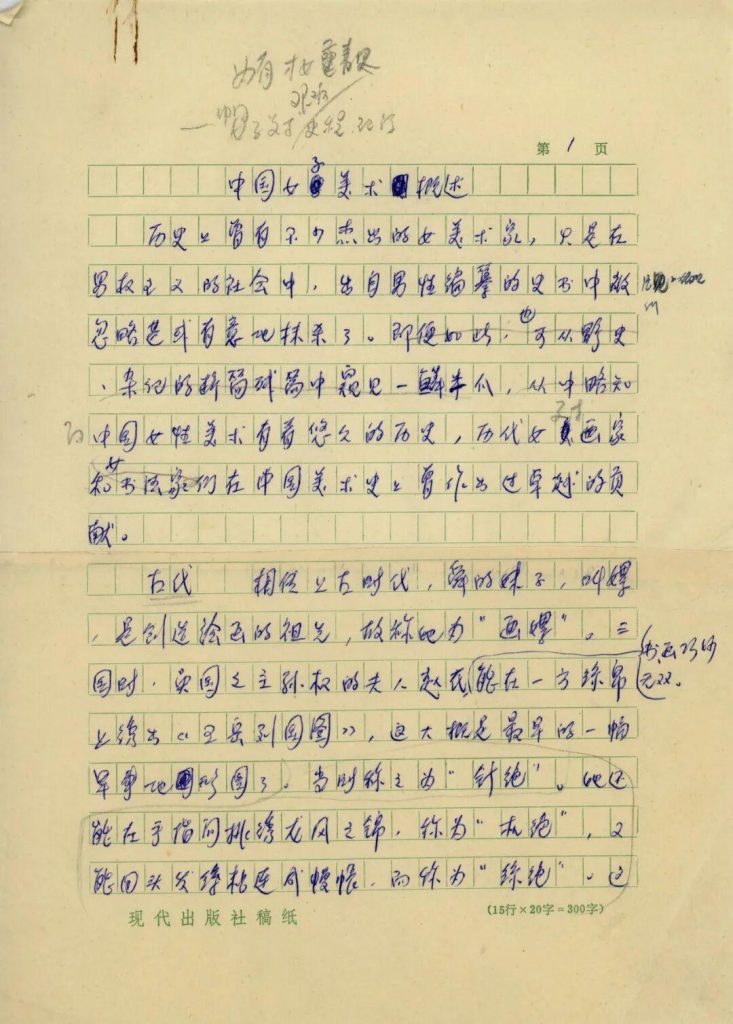 第 1 页
中国女子美术概述
历史上曾有不少杰出的女美术家，只是在
男权主义的社会中，出自男性编纂的史书中被
忽略甚或有意地抹杀了。即便如此，也可从野史
、杂记的断简残篇中窥见一鳞半爪，从中略知
中国女性美术有着悠久的历史，历代女画家
和女书法家们在中国美术史上曾作出过卓越的贡
献。
古代 相传上古时代，舜的妹子，叫嫘
，是创造绘画的祖先，故称她为“画嫘”。三
国时，吴国之主孙权的夫人赵氏能在一方绦帛
书画巧妙
无双。
上绣出《五岳列国图》，这大概是最早的一幅
军事地形图了。当时称之为“针绝”。她还
能在手指间挑绣龙凤之锦，称为“机绝”，又
能回头发缔粘连成幔帐，而称为“绦绝”。这
现代出版社稿纸
（15行×20字=300字）